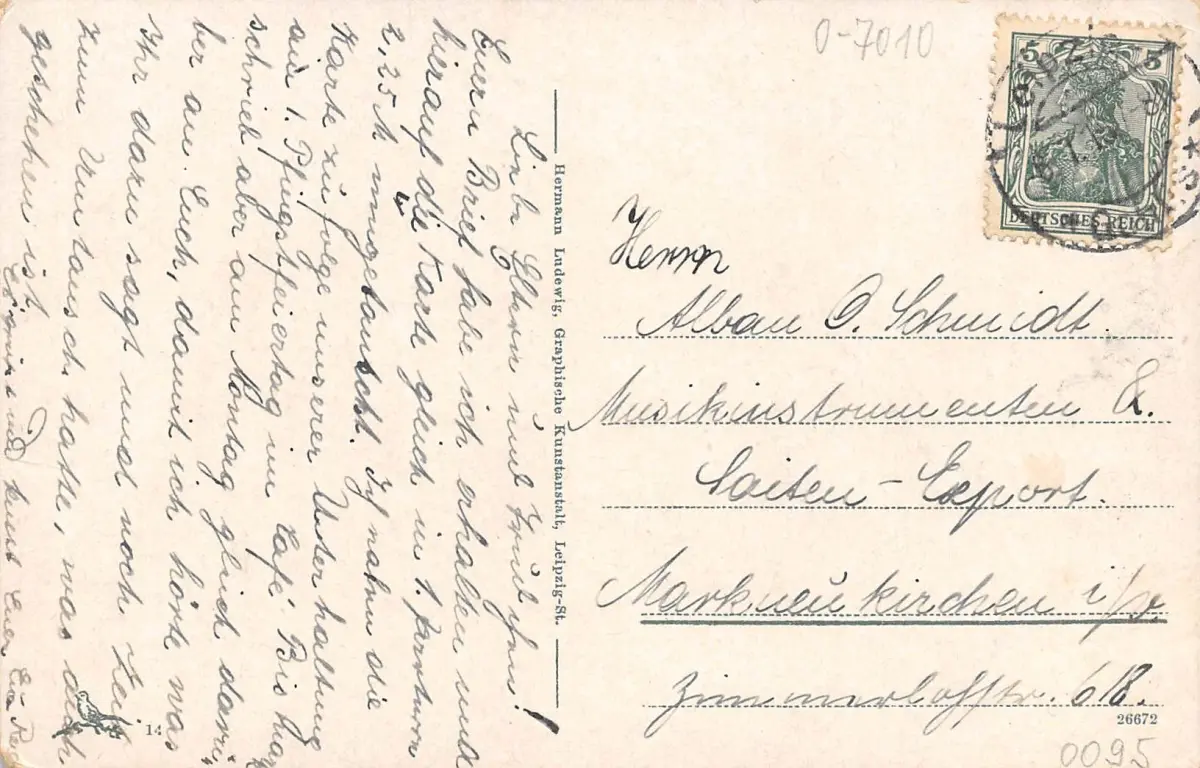 0-7010
5 5
DEUTSCHES REICH
LEIPZIG
Herrn
Alban O. Schmidt.
Musikinstrumenten &
Saiten-Export.
Markneukirchen i/
Zimmerlohstr. 618.
26672
0095
Hermann Ludewig, Graphische Kunstanstalt, Leipzig-St.
14
Liebe Eltern und
Euern Brief habe ich erhalten und
hierauf die Karte gleich in
2,25 M umgetauscht. Ich nahm die
Karte zufolge unserer Unterhaltung
am 1. Pfingstfeiertag im Café Bis
schrieb aber am Montag gleich
ber an Euch, damit ich hörte was
Ihr dazu sagt und noch Zeit
zum Umtausch hatte, was auch
geschehen ist.